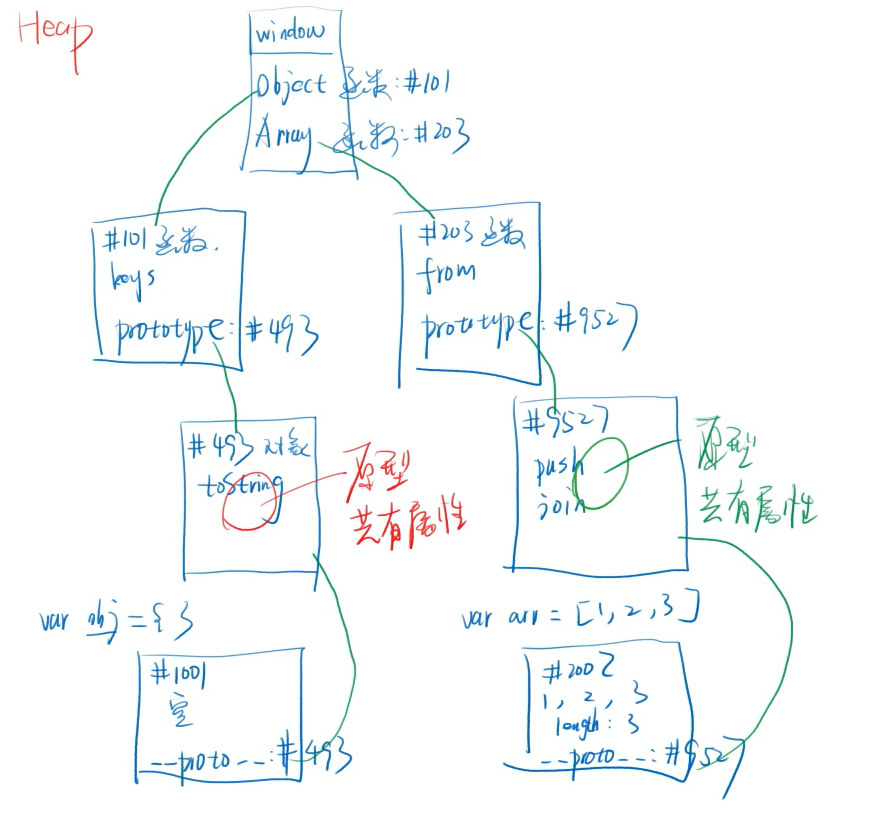 Heap
window
Object 函数:#101
Array 函数:#203
#101 函数.
keys
prototype:#493
#203 函数
from
prototype:#9527
#493 对象
toString
原型
共有属性
#9527
push
join
原型
共有属性
var obj = { }
#1001
空
__proto__:#493
var arr = [1,2,3]
#2002
1, 2, 3
length: 3
__proto__:#9527